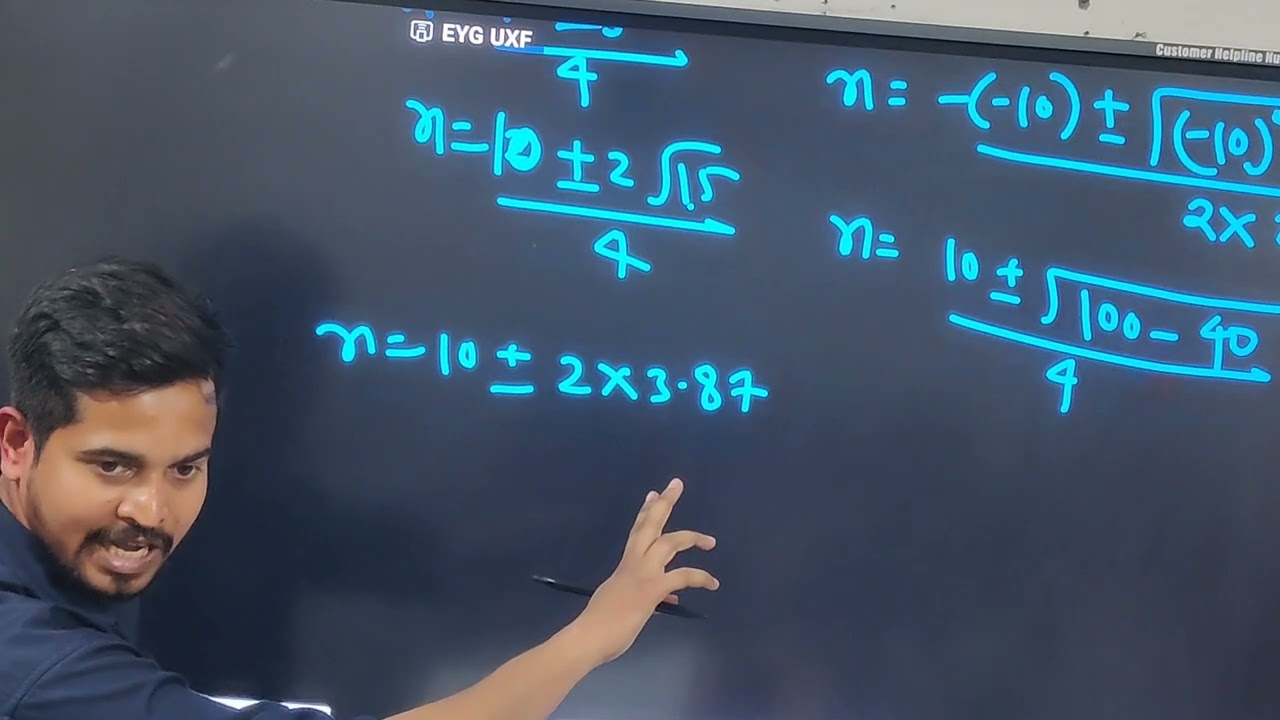 EYG UXF
Customer Helpline Nu
4
n = 10 ± 2 √15
4
n = 10 ± 2 x 3.87
n = -(-10) ± √(-10)
2x
n = 10 ± √100 - 40
4